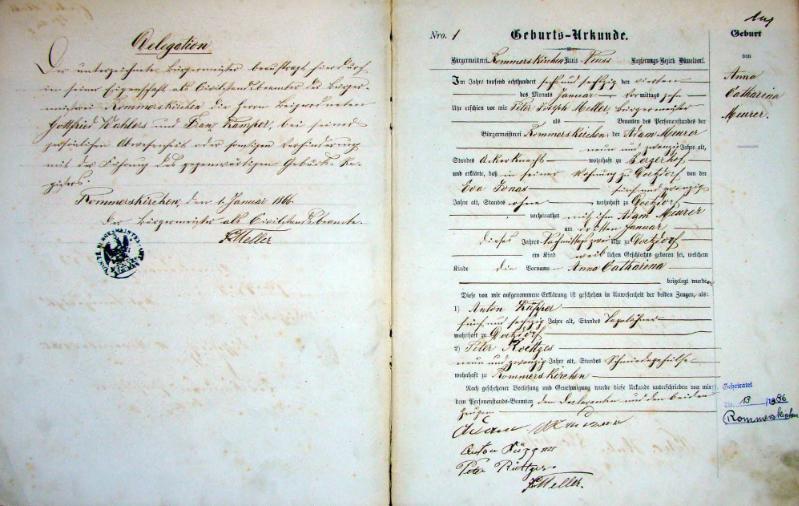 Delegation
Der unterzeichnete Bürgermeister beauftragt hierdurch
in seiner Eigenschaft als Civilstandsbeamter der Bürger-
meisterei Rommerskirchen die Herrn Beigeordneten
Gottfried und Franz Kamper, bei seiner
persönlichen Abwesenheit oder sonstigen Verhinderung
mit der Führung des gegenwärtigen Geburts-Re-
gisters.
Rommerskirchen, den 1. Januar 1866.
Der Bürgermeister als Civilstandsbeamte
Meller
Nro. 1 Geburts-Urkunde.
Bürgermeisterei Rommerskirchen Kreis Neuss Regierungs-Bezirk Düsseldorf.
Im Jahre tausend achthundert sechs und sechszig den vierten
des Monats Januar Vormittags zehn
Uhr erschien vor mir Peter Joseph Meller, Bürgermeister
als Beamten des Personenstandes der
Bürgermeisterei Rommerskirchen, der Adam Meurer
neun und zwanzig Jahre alt,
Standes Ackerknecht wohnhaft zu
und erklärte, daß in seiner Wohnung zu Goetzdorf von der
Eva Jonas
Jahre alt, Standes ohne wohnhaft zu Goetzdorf
verheirathet mit ihm Adam Meurer
am ersten Januar
dieses Jahres Nachmittags zwei Uhr zu Goetzdorf
ein Kind weiblichen Geschlechts geboren sei, welchem
Kinde die Vorname Anna Catharina
beigelegt wurde
Diese von mir aufgenommene Erklärung ist geschehen in Anwesenheit der beiden Zeugen, als:
1) Anton Küpper
Jahre alt, Standes Tagelöhner
wohnhaft zu
2) Peter Roettges
neun und zwanzig Jahre alt, Standes Schmiedegehülfe
wohnhaft zu Rommerskirchen
Nach geschehener Vorlesung und Genehmigung wurde diese Urkunde unterschrieben von mir
dem Personenstands-Beamten, dem Declaranten und den beiden
Zeugen
Adam Meurer
Anton Küpper
Peter Röttges
Meller.
Geburt
von
Anna
Catharina
Meurer.
Geheiratet
Nr. 13 / 1886
Rommerskirchen